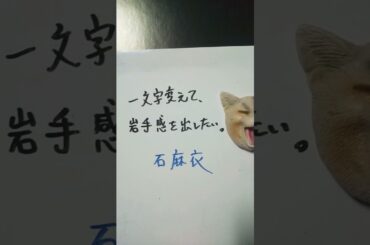 一文字変えて、
岩手感を出したい。
石麻衣